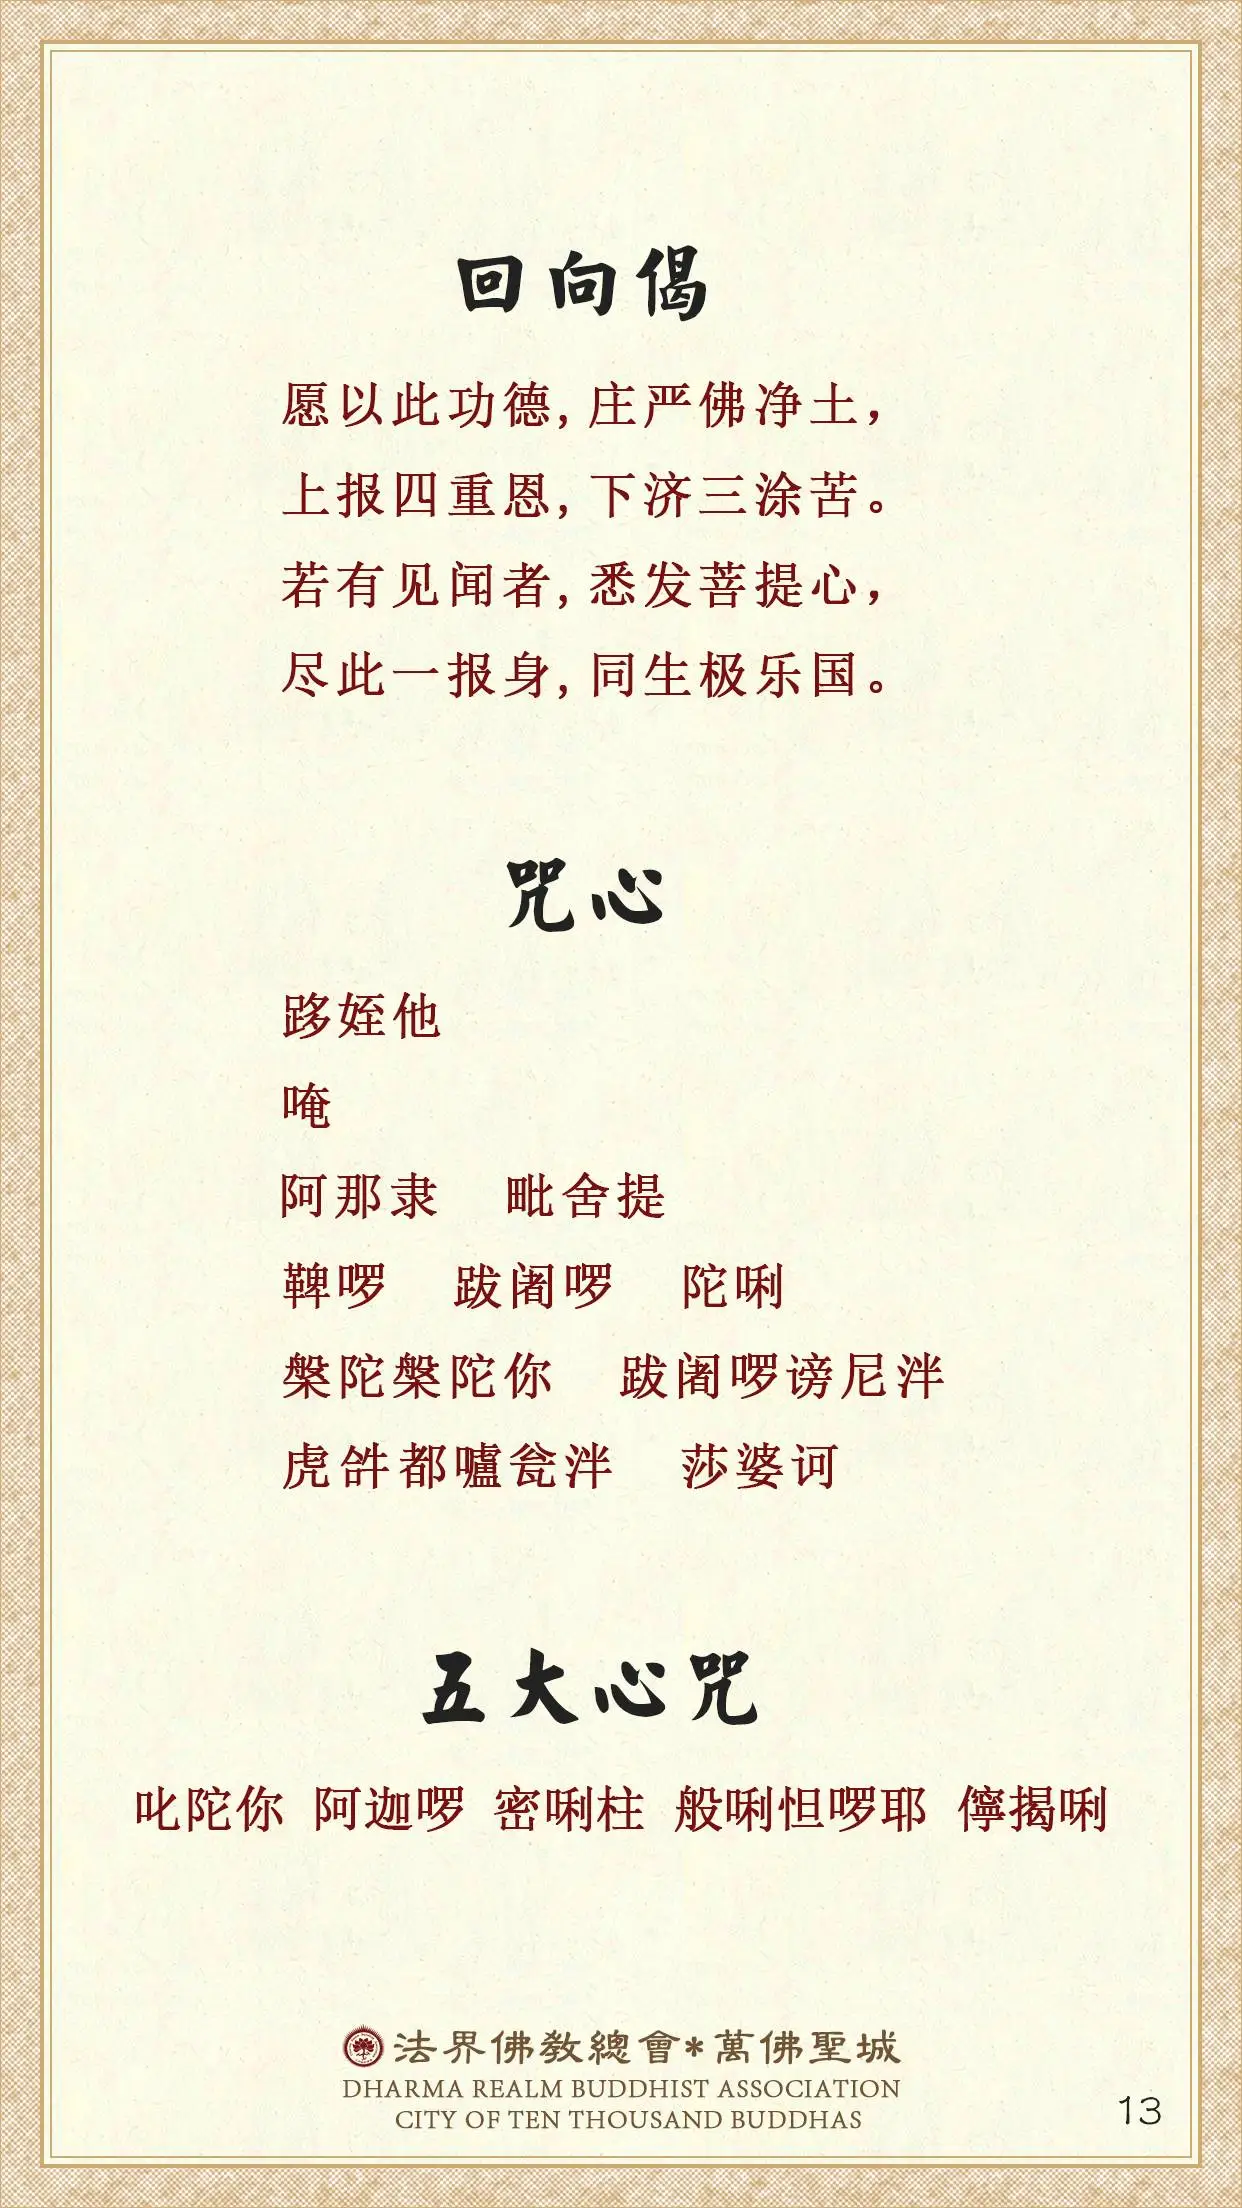 回向偈
愿以此功德, 庄严佛净土，
上报四重恩, 下济三涂苦。
若有见闻者, 悉发菩提心，
尽此一报身, 同生极乐国。
咒心
跢姪他
唵
阿那隶 毗舍提
鞞啰 跋阇啰 陀唎
槃陀槃陀你 跋阇啰谤尼泮
虎𤙖都嚧瓮泮 莎婆诃
五大心咒
叱陀你 阿迦啰 密唎柱 般唎怛啰耶 儜揭唎
法界佛教總會*萬佛聖城
DHARMA REALM BUDDHIST ASSOCIATION
CITY OF TEN THOUSAND BUDDHAS
13